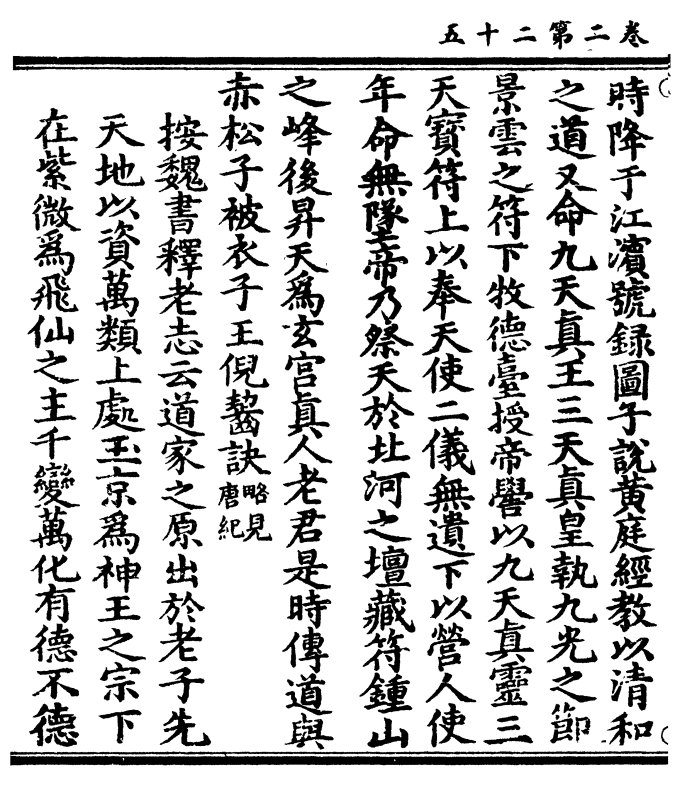 卷二第二十五
時降于江濱號録圖子說黄庭經教以清和
之道又命九天眞王三天眞皇執九光之節
景雲之符下牧德臺授帝嚳以九天眞靈三
天寶符上以奉天使二儀無遺下以營人使
年命無墬帝乃祭天於北河之壇藏符鍾山
之峰後昇天爲玄宮眞人老君是時傳道與
赤松子被衣子王倪齧訣略見唐紀
按魏書釋老志云道家之原出於老子先
天地以資萬類上處玉京爲神王之宗下
在紫微爲飛仙之主千變萬化有德不德